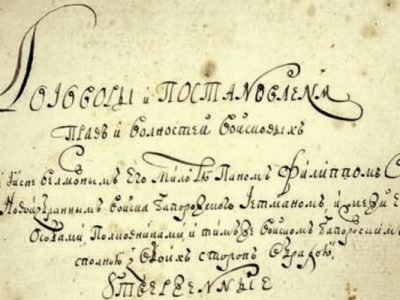 Договоры и ПОСТАНОВЛЕНѦ
Правъ и волностей войсковыхъ
Ясне велможнымъ Его Милостю Паномъ Филиппомъ
Новоизбраннымъ войска Запорозского Гетманомъ и межи
Особами, Полковниками и тимъ же войскомъ Запорозскимъ
сполною з обоихъ сторонъ обрадою,
Утверженные